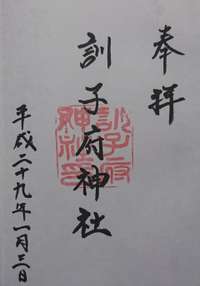 奉拝
訓子府神社
訓子府神社印
平成二十九年一月三日